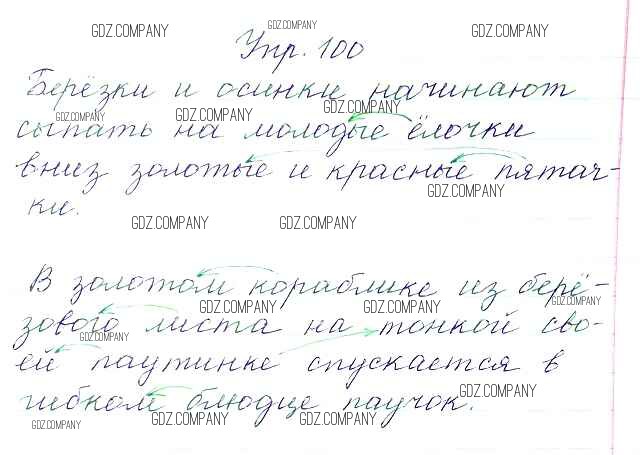 GDZ.COMPANY GDZ.COMPANY GDZ.COMPANY
Упр. 100
Берёзки и осинки начинают
GDZ.COMPANY GDZ.COMPANY GDZ.COMPANY
сыпать на молодые ёлочки
вниз золотые и красные пятач-
GDZ.COMPANY
ки.
GDZ.COMPANY GDZ.COMPANY
В золотом кораблике из берё-
GDZ.COMPANY GDZ.COMPANY GDZ.COMPANY
зового листа на тонкой сво-
GDZ.COMPANY
ей паутинке спускается в
GDZ.COMPANY
гибком блюдце паучок.
GDZ.COMPANY GDZ.COMPANY GDZ.COMPANY